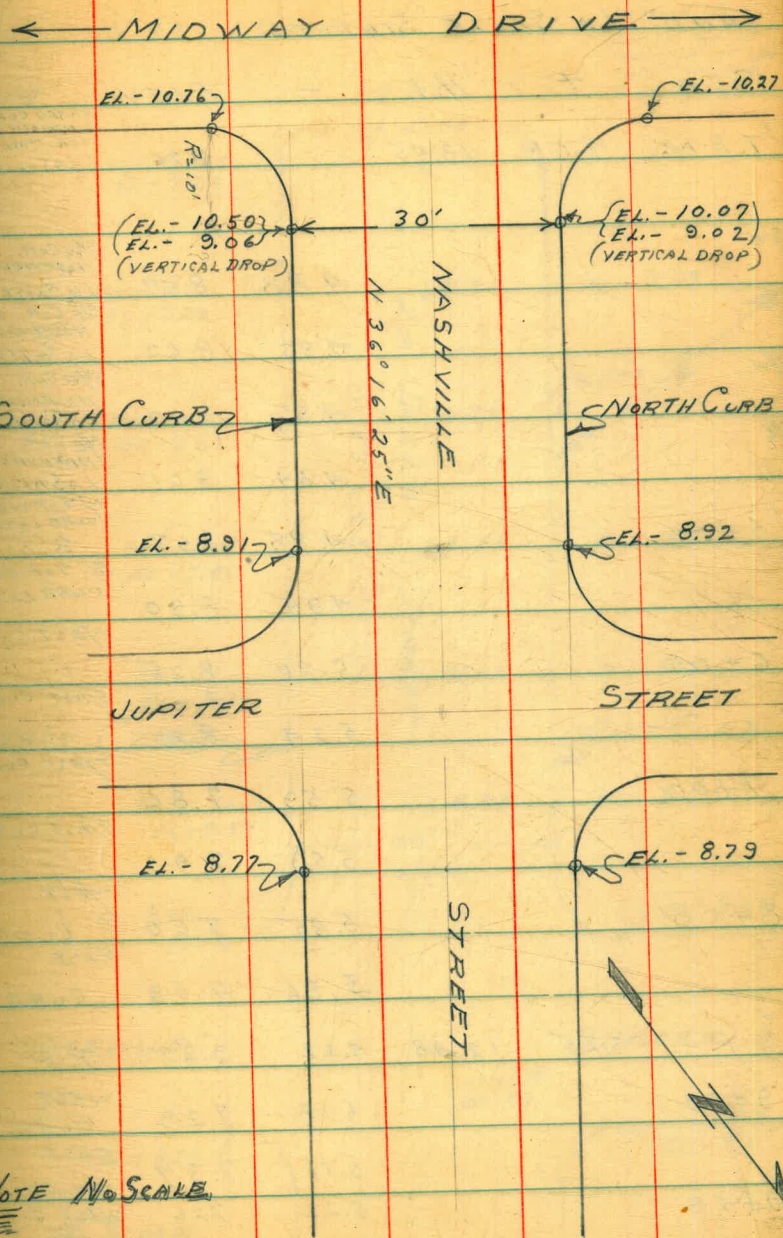 MIDWAY DRIVE
EL.- 10.76
EL.- 10.27
R=10'
(EL.- 10.50)
(EL.- 9.06)
(VERTICAL DROP)
30'
(EL.- 10.07)
(EL.- 9.02)
(VERTICAL DROP)
NASHVILLE
N 36° 16' 25" E
SOUTH CURB
NORTH CURB
EL.- 8.91
EL.- 8.92
JUPITER STREET
EL.- 8.77
EL.- 8.79
STREET
N
NOTE No SCALE